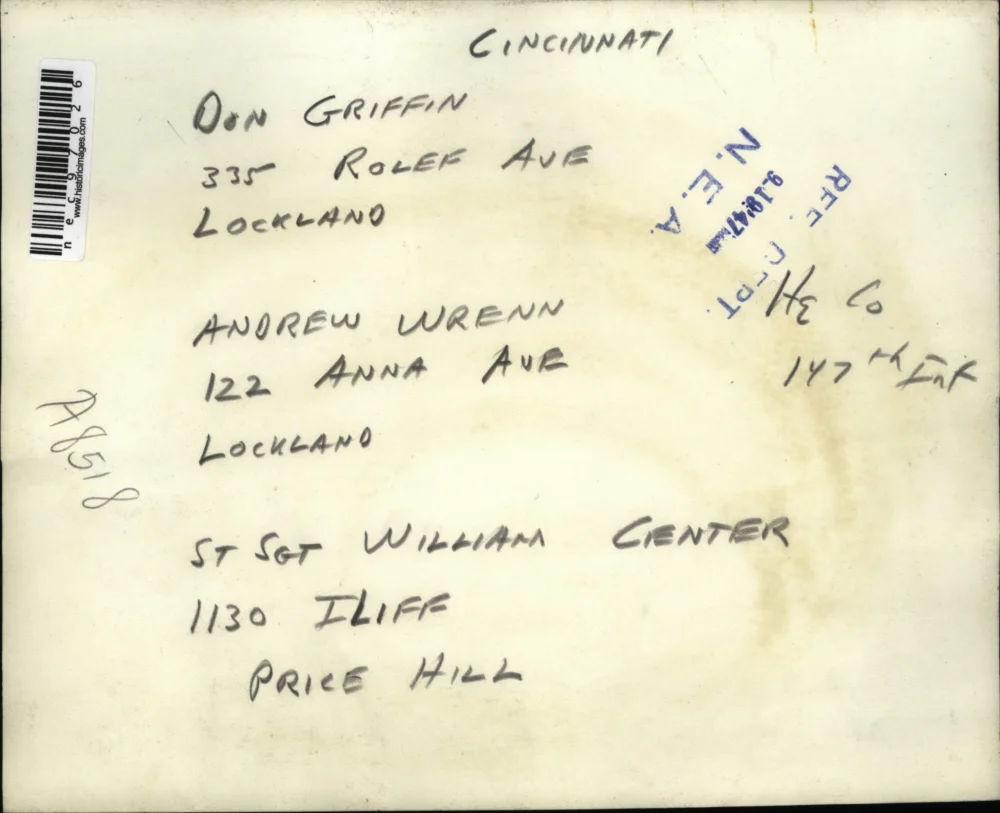 CINCINNATI
DON GRIFFIN
335 ROLEF AVE
LOCKLAND
N.E.A.
9.18'47
REF. DEPT.
ANDREW WRENN
122 ANNA AVE
LOCKLAND
Hq Co
147th Inf
ST SGT WILLIAM CENTER
1130 ILIFF
PRICE HILL
A8518
nec97026
www.historicimages.com